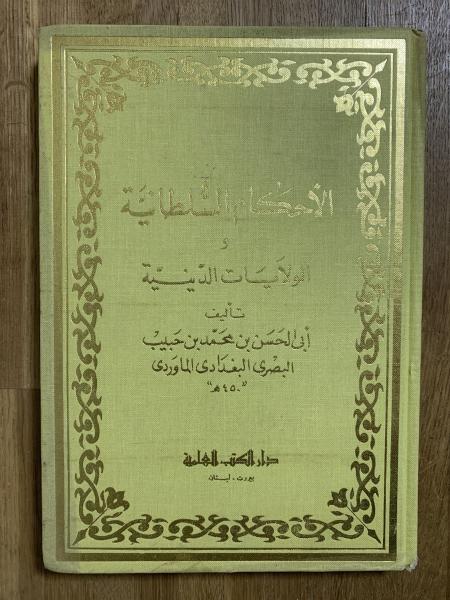 الأحكام السلطانية
و
الولايات الدينية
تأليف
أبي الحسن بن محمد بن حبيب
البصري البغدادي الماوردي
"٤٥٠ هـ"
دار الكتب العلمية
بيروت - لبنان